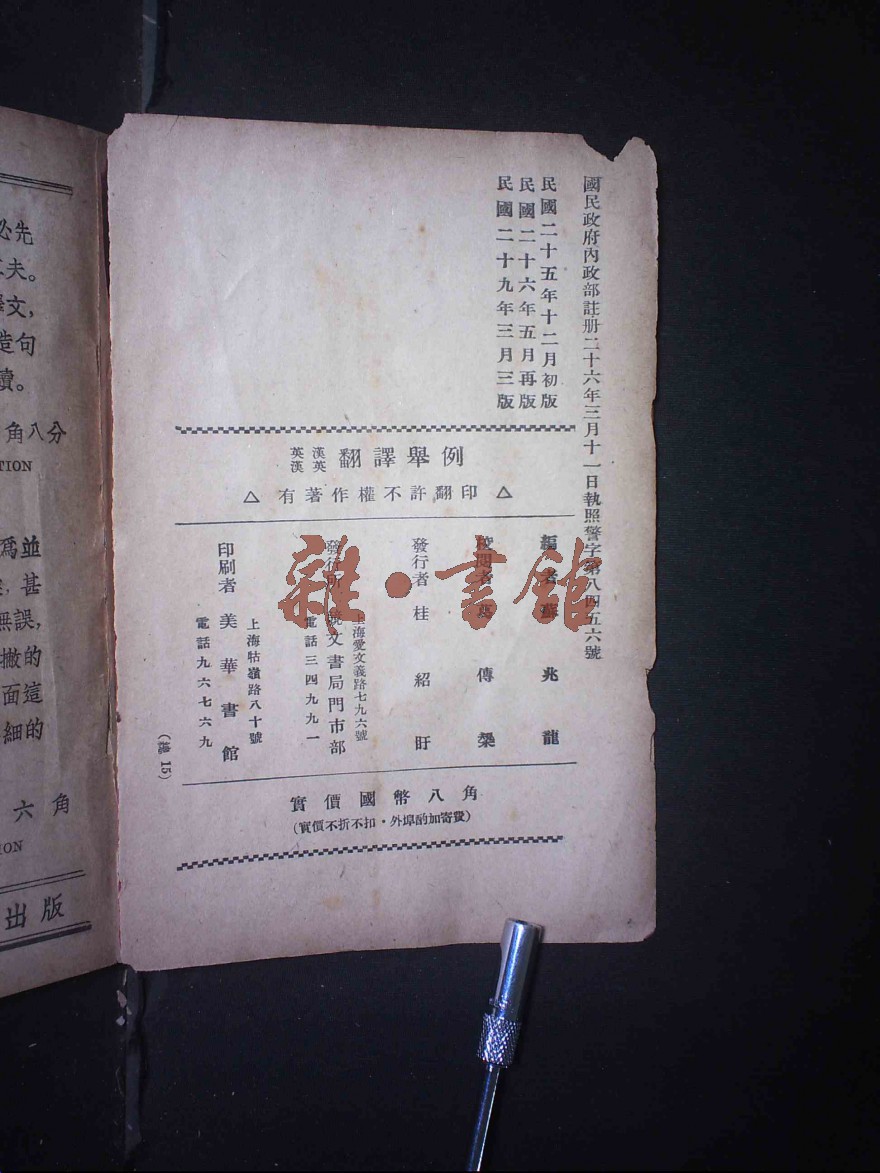 國民政府內政部註册二十六年三月十一日執照警字第八四五六號
民國二十五年十二月初版
民國二十六年五月再版
民國二十九年三月三版
英漢
漢英
翻譯舉例
△ 有著作權不許翻印 △
編者 蘇兆龍
校閱者 葛傳槼
發行者 桂紹盱
發行所
上海愛文義路七九六號
文書局門市部
電話三四九九一
印刷者 美華書館
上海牯嶺路八十號
電話九六七六九
(總15)
實價國幣八角
(實價不折不扣·外埠酌加寄費)
雜·書館
必先
夫。
文,
造句
讀。
角八分
TION
爲並
甚
無誤,
撇的
面這
細的
六角
ION
出版